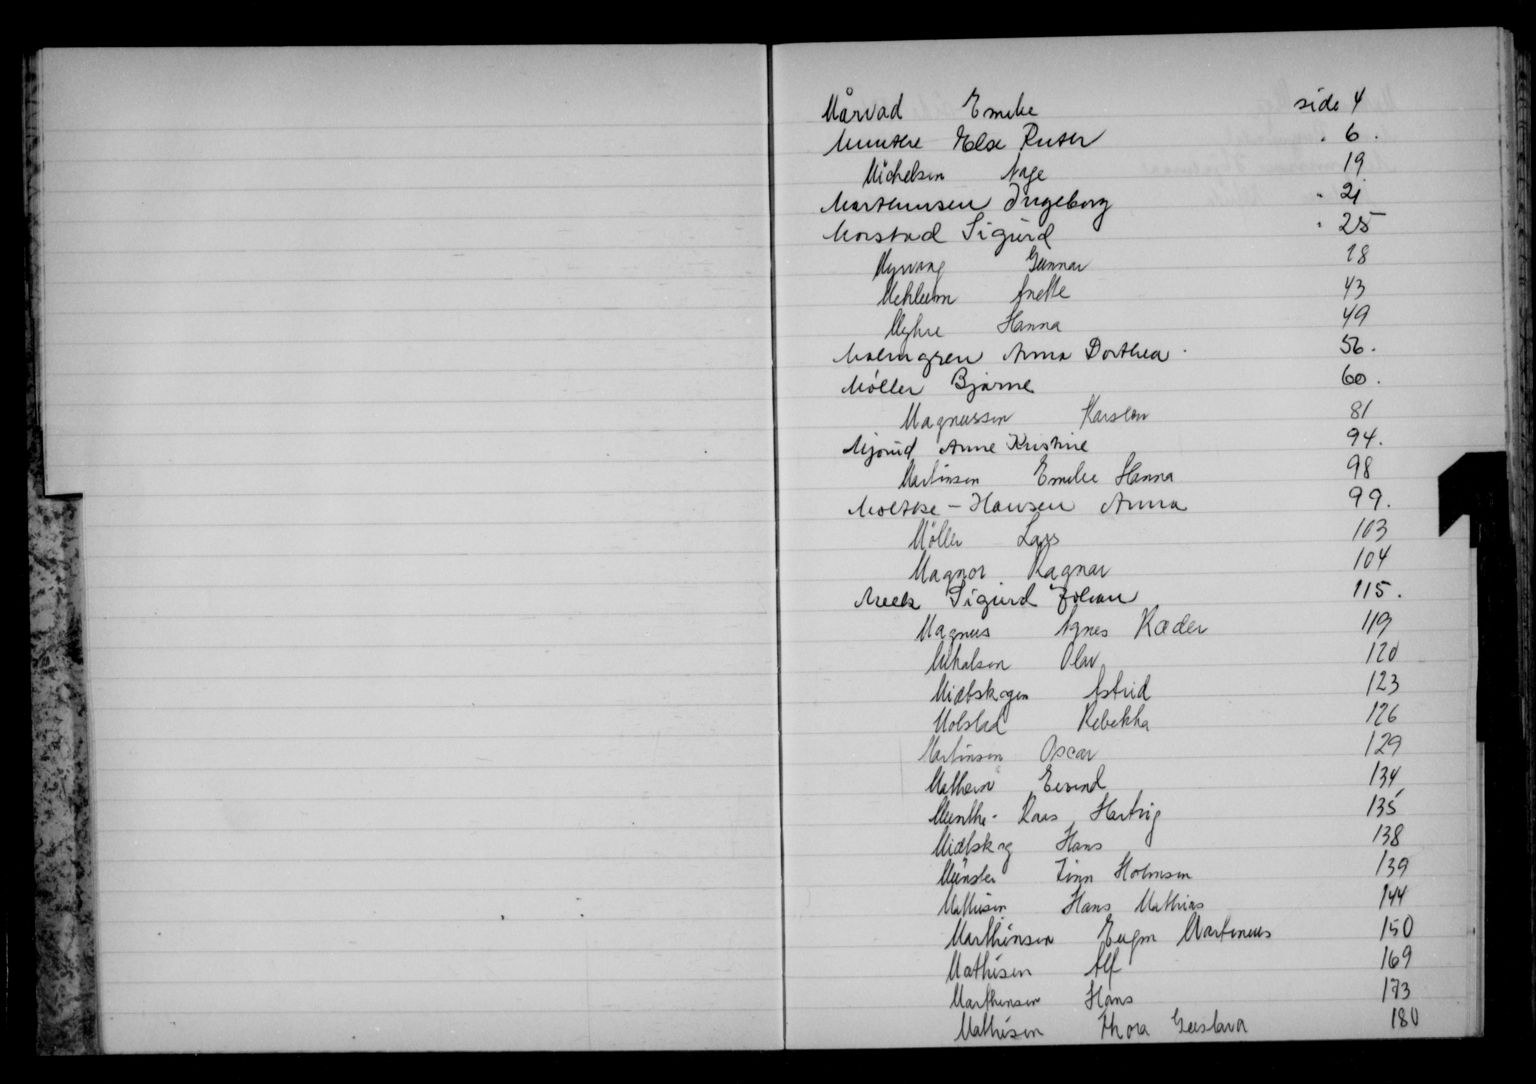 Mårvad Emilie side 4
Munthe Else Ruth " 6.
Michelsen Aage 19
Marthinsen Ingeborg " 21
Morstad Sigurd " 25
Myrvang Gunnar 28
Mehlum Anette 43
Myhre Hanna 49
Malmgren Anna Dorthea. 56.
Møller Bjarne 60.
Magnussen Karsten 81
Mjørud Anne Kristine 94.
Martinsen Emilie Hanna 98
Moltke-Hansen Anna 99.
Møller Lars 103
Magnor Ragnar 104
Meek Sigurd Johan 115.
Magnus Agnes Ræder 119
Mikalsen Olav 120
Midtskogen Astrid 123
Molstad Rebekka 126
Martinsen Oscar 129
Mathisen Eivind 134
Munthe-Kaas Hartvig 135
Midtskog Hans 138
Münster Finn Holmsen 139
Mathisen Hans Mathias 144
Marthinsen Eugen Martinius 150
Mathisen Alf 169
Marthinsen Hans 173
Mathisen Thora Gustava 180